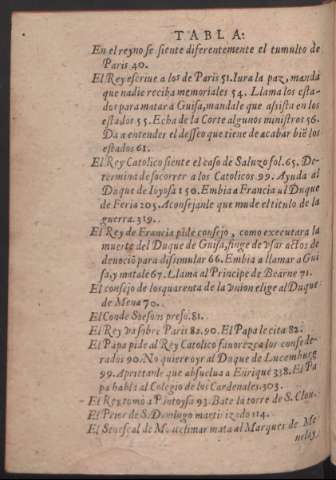 TABLA:
En el reyno se siente diferentemente el tumulto de
Paris 40.
El Rey escriue a los de Paris 51. Iura la paz, manda
que nadie reciba memoriales 54. Llama los esta-
dos para matar a Guisa, mandale que assista en los
estados 55. Echa de la Corte algunos ministros 56.
Da a entender el desseo que tiene de acabar biē los
estados 61.
El Rey Catolico siente el caso de Saluzo fol. 65. De-
termina de socorrer a los Catolicos 99. Ayuda al
Duque de Ioyosa 150. Embia a Francia al Duque
de Feria 205. Aconsejanle que mude el titulo de la
guerra. 319.
El Rey de Francia pide consejo, como executara la
muerte del Duque de Guisa, finge de vsar actos de
deuociō para disimular 66. Embia a llamar a Gui
sa, y matale 67. Llama al Principe de Bearne 71.
El consejo de los quarenta de la vnion elige al Duque
de Mena 70.
El Conde Soesons preso. 81.
El Rey va sobre Paris 82. 90. El Papa le cita 82.
El Papa pide al Rey Catolico fauorezca los confede-
rados 90. No quiere oyr al Duque de Lucemburg
99. Aprietanle que absuelua a Enrique 338. El Pa
pa habla al Colegio de los Cardenales. 303.
El Rey toma a Pontoysa 93. Bate la torre de S. Clou.
El Prior de S. Domingo martirizado 114.
El Senescal de Montelimar mata al Marques de Me
nelay.